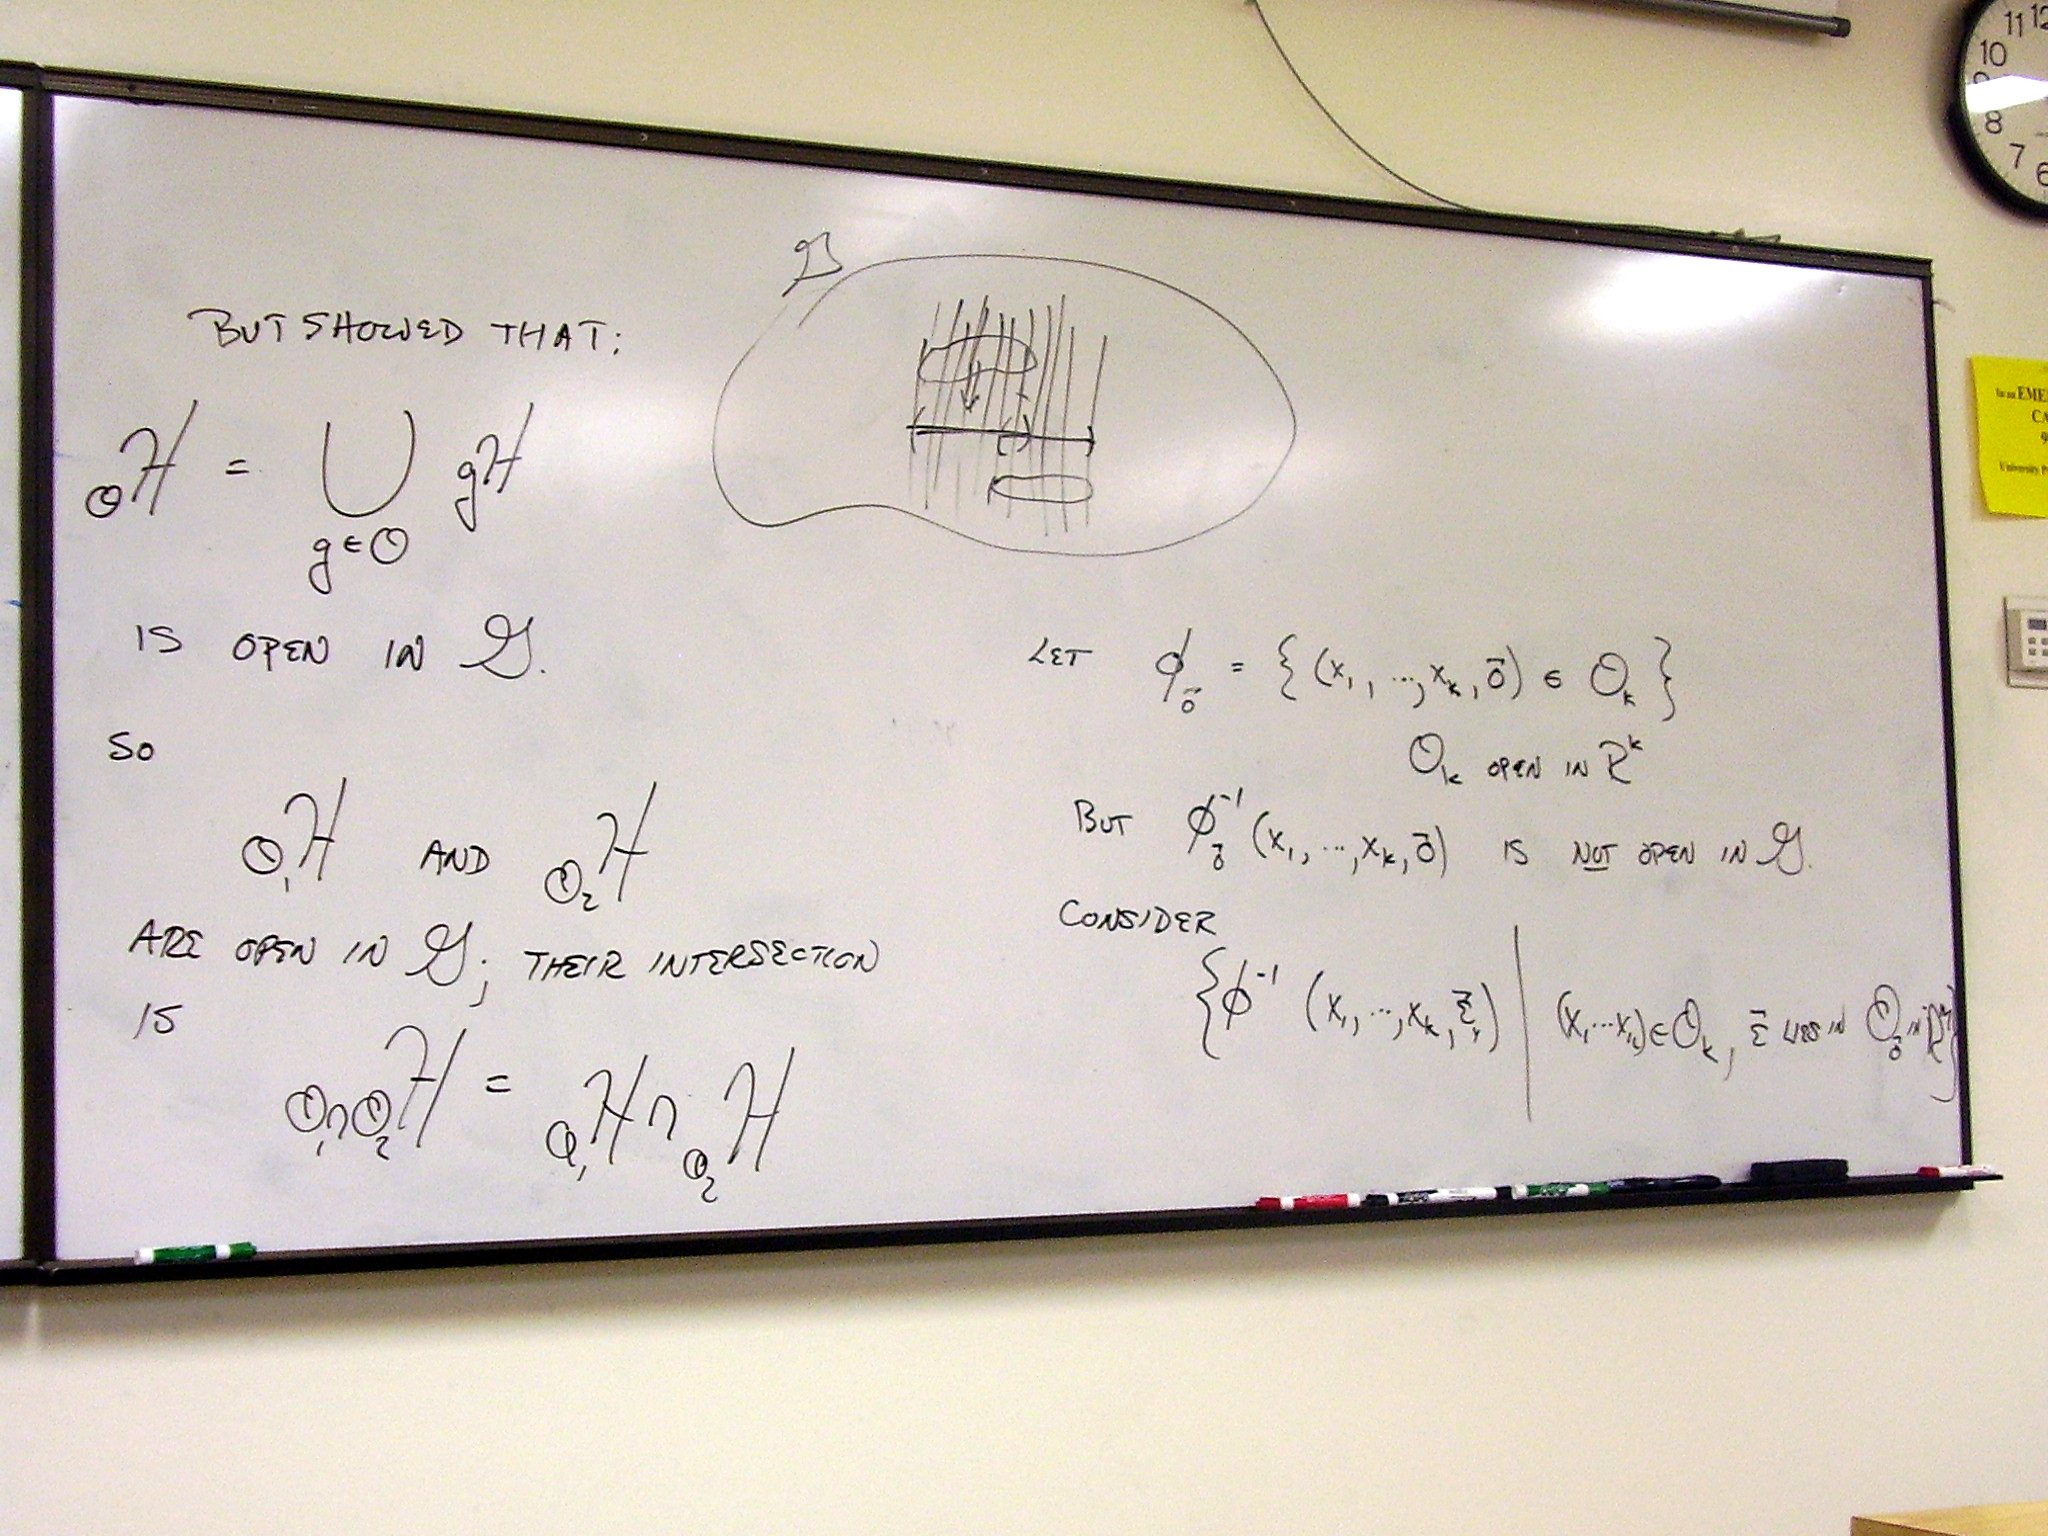 BUT SHOWED THAT:
𝒪ℋ = ⋃ gℋ
g∈𝒪
IS OPEN IN 𝒢.
SO
𝒪₁ℋ AND 𝒪₂ℋ
ARE OPEN IN 𝒢; THEIR INTERSECTION
IS
𝒪₁∩𝒪₂ℋ = 𝒪₁ℋ ∩ 𝒪₂ℋ
𝒢
LET ϕ_0⃗ = { (x₁, ..., xₖ, 0⃗) ∈ 𝒪ₖ }
𝒪ₖ OPEN IN ℝᵏ
BUT ϕ_0⃗⁻¹ (x₁, ..., xₖ, 0⃗) IS NOT OPEN IN 𝒢.
CONSIDER
{ ϕ⁻¹ (x₁, ..., xₖ, ε⃗) | (x₁...xₖ) ∈ 𝒪ₖ, ε⃗ LIES IN 𝒪_0⃗ IN ℝ }
11 12
10
9
8
7
6
In an EME
CA
9
University P